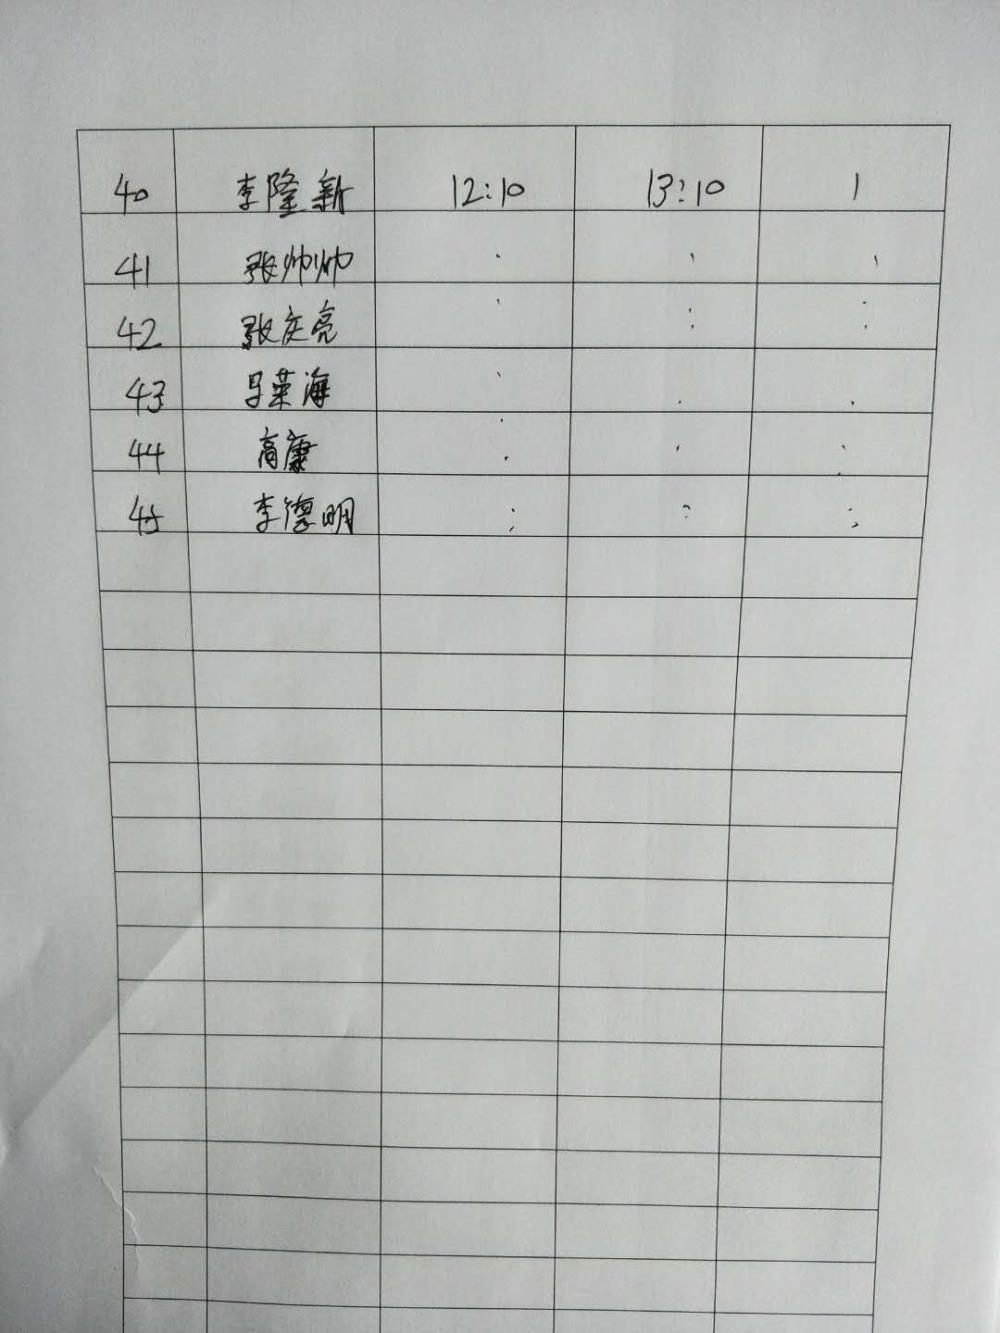 40 李隆新 12:10 13:10 1
41 张帅帅
42 张庆亮
43 吕荣海
44 高康
45 李德明